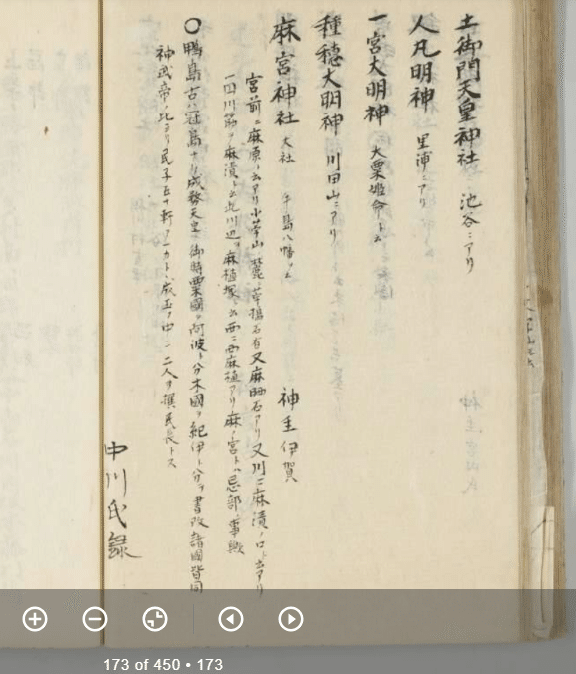 土御門天皇神社 池谷ニアリ
人凡明神 里浦ニアリ
一宮大明神 大粟姫命ト云
種穂大明神 川田山ニアリ
麻宮神社 大社 牛島八幡ト云 神主 伊賀
宮前ニ麻原ト云アリ小山麓 石有又麻晒石アリ又川ニ麻漬ノ口ト云アリ
一四川筋ヲ麻漬ト云此川辺ヲ麻植塚ト云西ニ西麻植アリ麻ノ宮トハ忌部ノ事歟
〇鴨島古ハ冠島ナリ成務天皇ノ御時粟國ヲ阿波ト分木國ヲ紀伊ト分テ書改諸國皆同
神武帝ノ比ヨリ民子五十軒 一カト 中ノ一二人ヲ撰民長トス
中川氏録
173 of 450 • 173